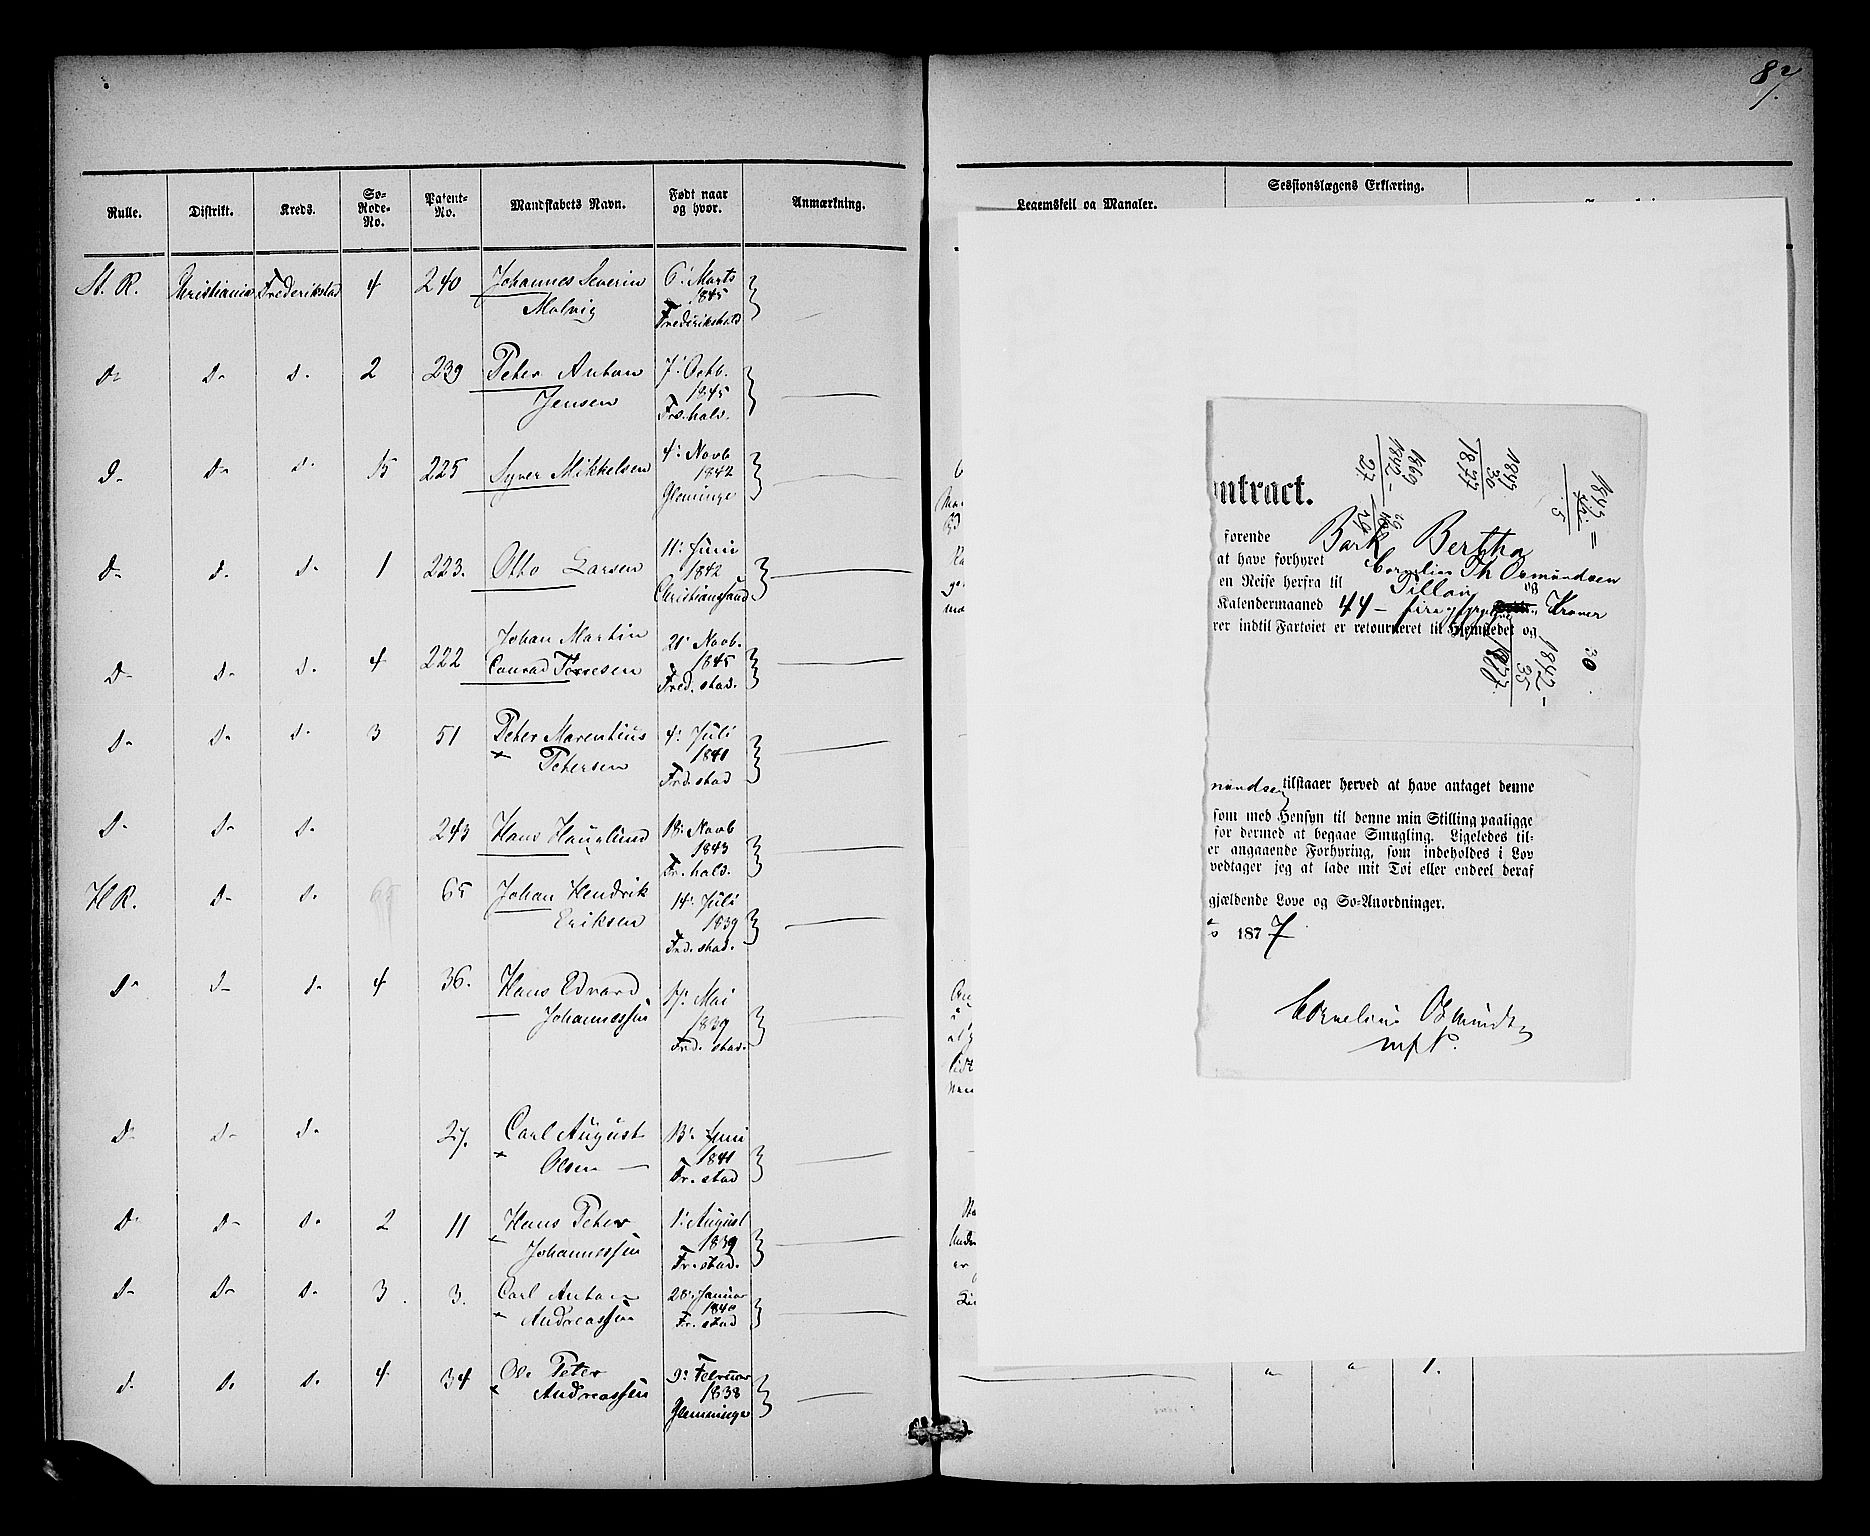 82/.
Rulle. Distrikt. Kreds. Sø-Rode-No. Patent-No. Mandskabets Navn. Født naar og hvor. Anmærkning.
St. R. Christiania Frederikstad 4 240 Johannes Severin 6' Marts
Malvig 1845
Frederikshald
D- D- d- 2 239 Peter Anton 7' Octb.
Jensen 1845
Frd.hald.
D- D- d- 15 225 Syver Mikkelsen 4' Novb
1842
Glemminge
D- d- d- 1 223. Otto Larsen 11' Juni
1842
Christianssand
Johan Martin 21' Novb.
D- d- d- 4 222 Conrad Torresen 1845
Fred.stad.
D- D- d- 3 51 Peter Marentius 4' Juli
Petersen 1841
Frd.stad
D- D- d- 243 Hans Hauglund 18' Novb
1843
Fr.hald.
H R. D- d- 65 65 Johan Hendrik 14' Juli
Eriksen 1839
Frd.stad.
D- D- d- 4 36. Hans Edvard 17' Mai
Johannessen 1839
Frd.stad.
D- D- d- 27. Carl August 13' Juni
Olsen 1841
Fr.stad
D- D- d- 2 11 Hans Peter 1' August
Johannessen 1839
Fr.stad.
d- D- d- 3. 3. Carl Anton 28' Januar
Andreassen 1840
Fr.stad
d- D- d- 4 34 Ole Peter 9' Februar
Andreassen 1838
Glemminge
Legemsfeil og Mangler. Sessionslægens Erklæring.
ntract.
1869
1842 -
27
1847
30
1877
førende Bark Bertha
at have forhyret Cornelius Th Osmundsen
en Reise herfra til Tillau og
Kalendermaaned 44 - firegfyrge Kroner
rer indtil Fartøiet er retourneret til Hjemstedet og
1842 -
35
1877
30.
mundsen tilstaaer herved at have antaget denne
som med Hensyn til denne min Stilling paaligge
for dermed at begaae Smugling. Ligeledes til-
er angaaende Forhyring, som indeholdes i Lov
vedtager jeg at lade mit Tøi eller endeel deraf
gjældende Love og Sø-Anordninger.
1877
Cornelius Osmundsen
mpP.
1.